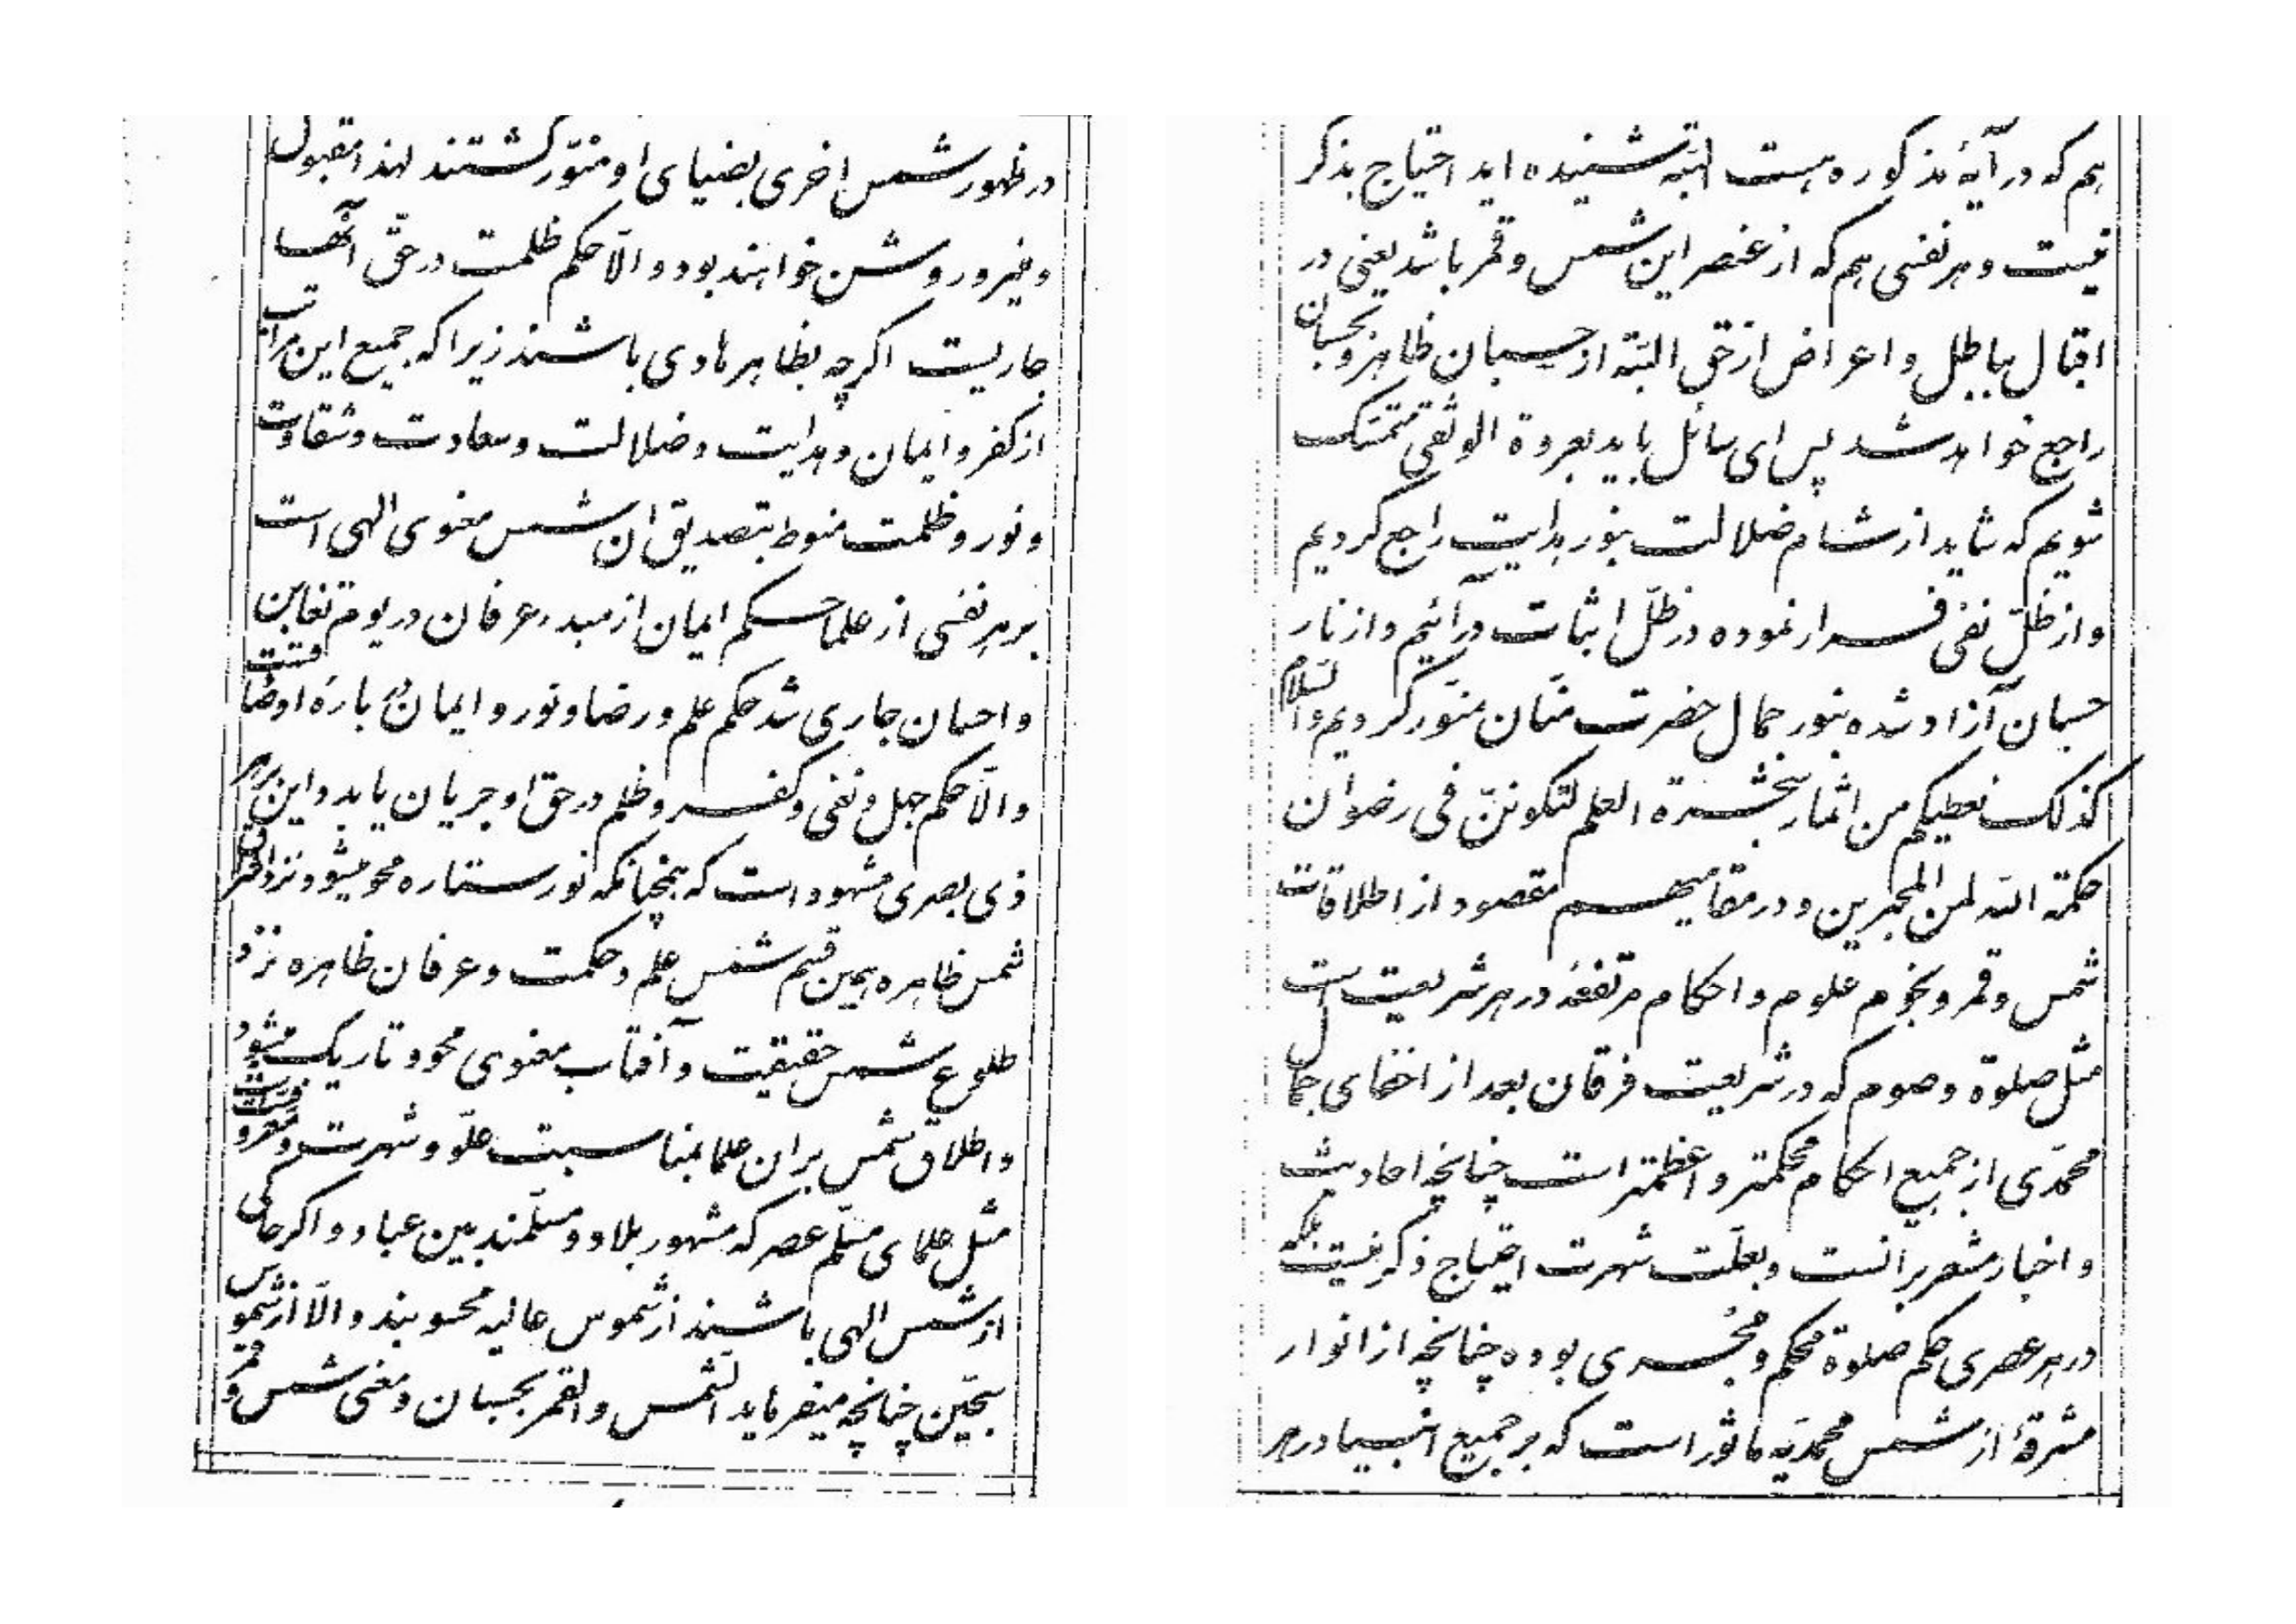 در ظهور شمس اخری بضیای او منوّر گشتند لهذا مقبول
و منیر و روشن خواهند بود و الّا حکم ظلمت در حقّ آنها
جاریست اگرچه بظاهر هادی باشند زیرا که جمیع این مراتب
از کفر و ایمان و هدایت و ضلالت و سعادت و شقاوت
و نور و ظلمت منوط بتصدیق ان شمس معنوی الهی است
بر هر نفسی از علما حکم ایمان از مبدء عرفان در یوم تغابن
و احسان جاری شد حکم علم و رضا و نور و ایمان در باره او صادقست
و الّا حکم جهل و نفی و کفر و ظلم در حق او جریان یابد و این بر هر
ذی بصری مشهود است که همچنانکه نور ستاره محو میشود نزد اشراق
شمس ظاهره همین قسم شمس علم و حکمت و عرفان ظاهره نزد
طلوع شمس حقیقت و آفتاب معنوی محو و تاریک میشود
و اطلاق شمس بر ان علما بمناسبت علوّ و شهرت و معروفیّت است
مثل علمای مسلّم عصر که مشهور بلاد و مسلّمند بین عباد و اگر حاکی
از شمس الهی باشند از شموس عالیه محسوبند و الّا از شموس
سجّین چنانچه میفرماید الشّمس و القمر بحسبان و معنی شمس و قمر
هم که در آیهٔ مذکوره هست البتّه شنیده اید احتیاج بذکر
نیست و هر نفسی هم که از عنصر این شمس و قمر باشد یعنی در
اقبال بباطل و اعراض از حق البتّه از حسبان ظاهر و بحسبان
راجع خواهد شد پس ای سائل باید بعروة الوثقی متمسّک
شویم که شاید از شام ضلالت بنور هدایت راجع گردیم
و از ظلّ نفی فرار نموده در ظلّ اثبات درآئیم و از نار
حسبان آزاد شده بنور جمال حضرت منّان منوّر گردیم و السّلام
کذلک نعطیکم من اثمار شجرة العلم لتکوننّ فی رضوان
حکمة اللّه لمن المحبرین و در مقامی هم مقصود از اطلاقات
شمس و قمر و نجوم علوم و احکام مرتفعهٔ در هر شریعت است
مثل صلوة و صوم که در شریعت فرقان بعد از اخفای جمال
محمّدی از جمیع احکام محکمتر و اعظمتر است چنانچه احادیث
و اخبار مشعر بر آنست و بعلّت شهرت احتیاج ذکر نیست بلکه
در هر عصری حکم صلوة محکم و مجری بوده چنانچه از انوار
مشرقهٔ از شمس محمّدیّه ماثور است که بر جمیع انبیا در هر